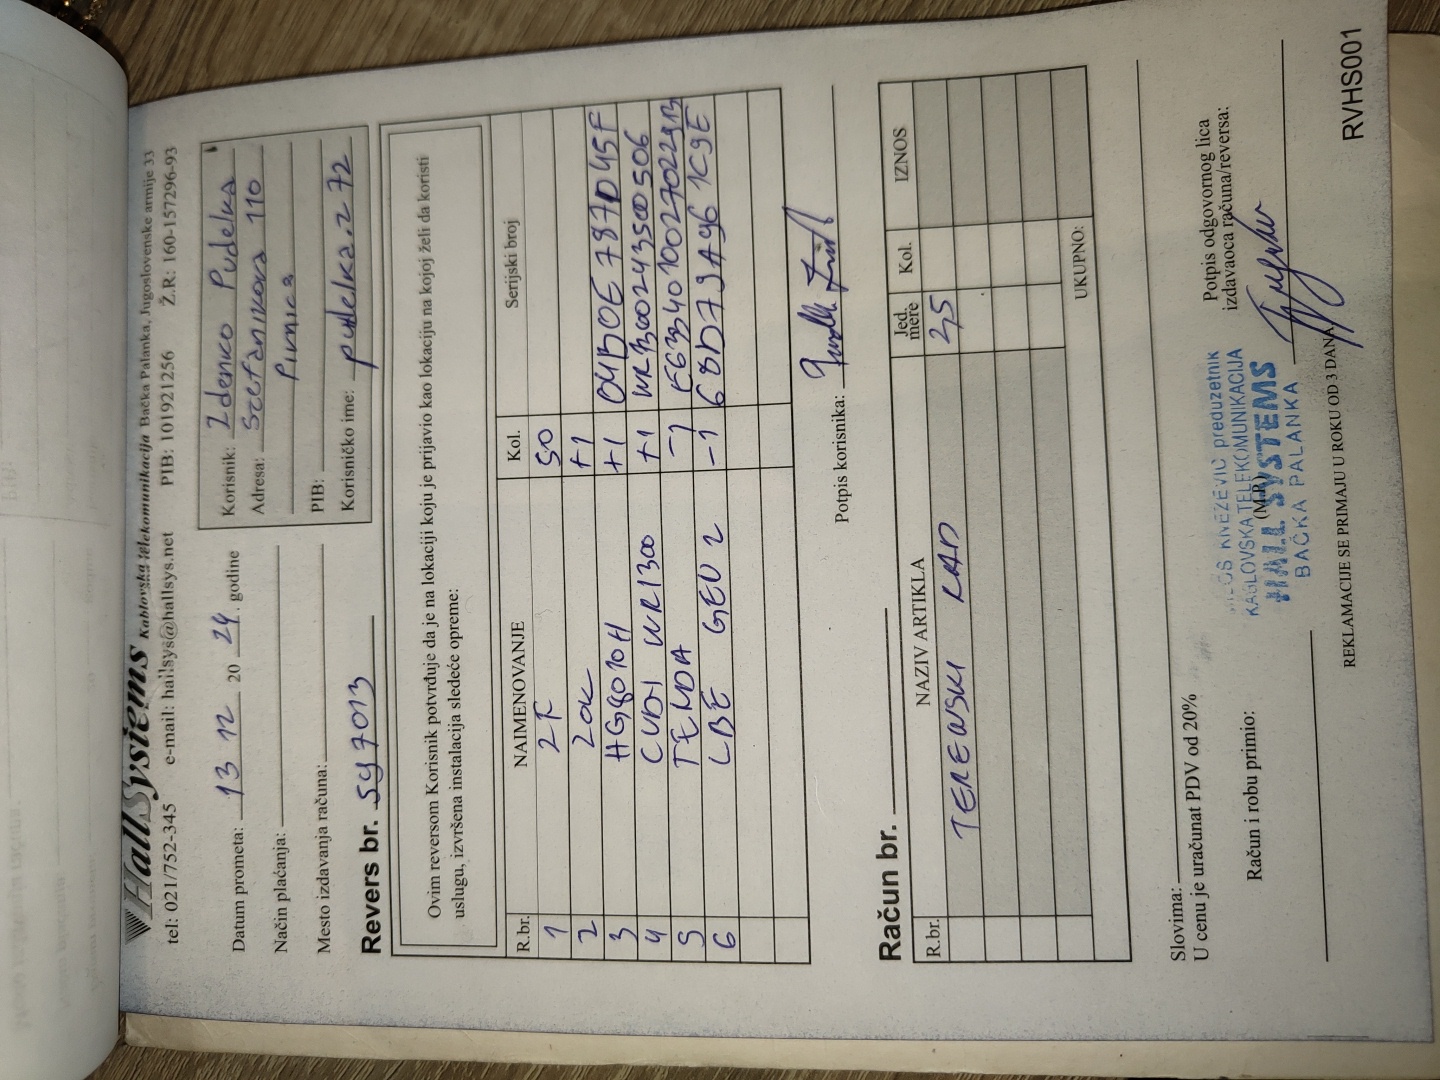 HallSystems Kablovska telekomunikacija Bačka Palanka, Jugoslovenske armije 33
tel: 021/752-345 e-mail: hallsys@hallsys.net PIB: 101921256 Ž.R: 160-157296-93
Datum prometa: 13 12 20 24. godine
Način plaćanja:
Mesto izdavanja računa:
Korisnik: Zdenko Pudelka
Adresa: Stefanikova 110
Pivnica
PIB:
Korisničko ime: pudelka.z 72
Revers br. 547013
Ovim reversom Korisnik potvrđuje da je na lokaciji koju je prijavio kao lokaciju na kojoj želi da koristi
uslugu, izvršena instalacija sledeće opreme:
R.br. NAIMENOVANJE Kol. Serijski broj
1 2F 50
2 ZOK +1
3 HG8010H +1 04B0E787D45F
4 CUDI WR1300 +1 WR1300243500506
5 TENDA -1 E6334010027022913
6 LBE GEN 2 -1 68D79A961C9E
Potpis korisnika:
Račun br.
R.br. NAZIV ARTIKLA Jed. mere Kol. IZNOS
TERENSKI RAD 2,5
UKUPNO:
Slovima:
U cenu je uračunat PDV od 20%
Račun i robu primio:
(M.P.)
Potpis odgovornog lica
izdavaoca računa/reversa:
KNEŽEVIĆ preduzetnik
KABLOVSKA TELEKOMUNIKACIJA
HALL SYSTEMS
BAČKA PALANKA
REKLAMACIJE SE PRIMAJU U ROKU OD 3 DANA
RVHS001